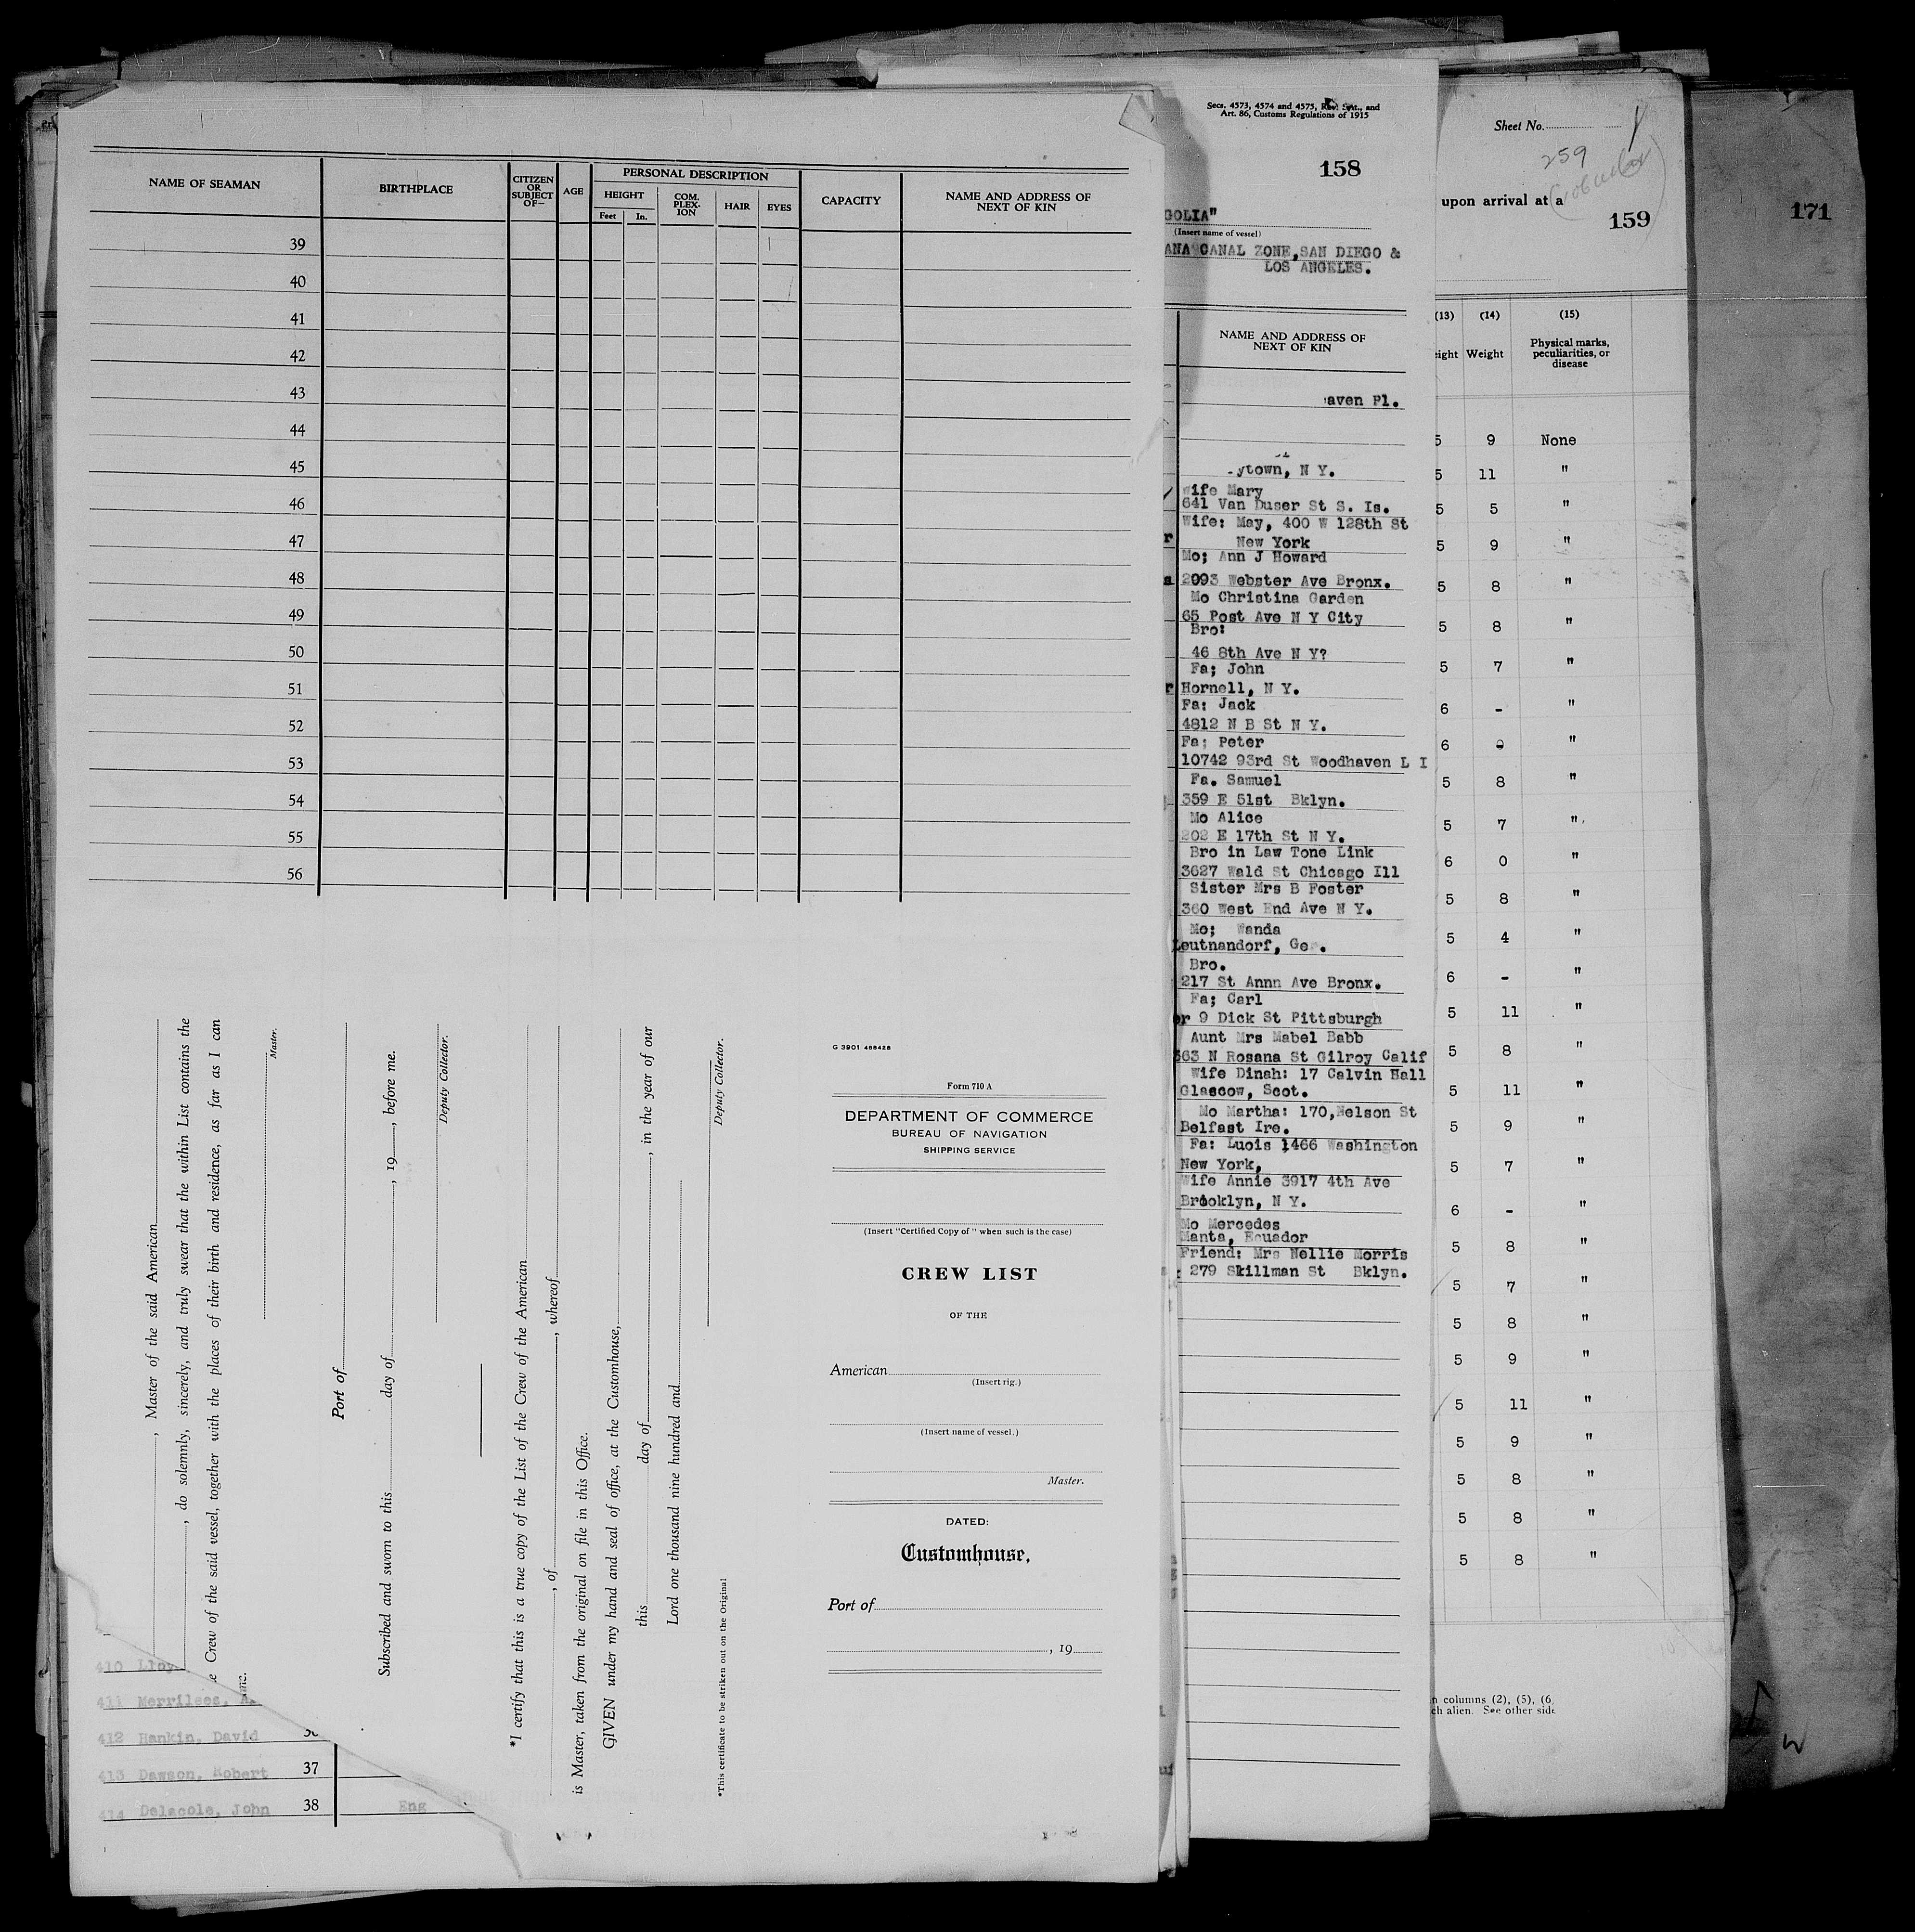 NAME OF SEAMAN
BIRTHPLACE
CITIZEN
OR
SUBJECT
OF—
AGE
PERSONAL DESCRIPTION
HEIGHT
Feet In.
COM.
PLEX-
ION
HAIR
EYES
CAPACITY
NAME AND ADDRESS OF
NEXT OF KIN
39
40
41
42
43
44
45
46
47
48
49
50
51
52
53
54
55
56
, Master of the said American
, do solemnly, sincerely, and truly swear that the within List contains the
Crew of the said vessel, together with the places of their birth and residence, as far as I can
Master.
Port of
Subscribed and sworn to this day of , 19 , before me.
Deputy Collector.
*I certify that this is a true copy of the List of the Crew of the American
, of , whereof
is Master, taken from the original on file in this Office.
GIVEN under my hand and seal of office, at the Customhouse,
this day of , in the year of our
Lord one thousand nine hundred and
Deputy Collector.
*This certificate to be striken out on the Original
G 3901 488428
Form 710 A
DEPARTMENT OF COMMERCE
BUREAU OF NAVIGATION
SHIPPING SERVICE
(Insert "Certified Copy of" when such is the case)
CREW LIST
OF THE
American
(Insert rig.)
(Insert name of vessel.)
Master.
DATED:
Customhouse,
Port of
, 19
410 Lloy
411 Merrilees, A.
412 Rankin, David
413 Dawson, Robert 37
414 Delacole, John 38 Eng
Secs. 4573, 4574 and 4575, Rev. Stat., and
Art. 86, Customs Regulations of 1915
158
GOLIA"
(Insert name of vessel)
ANA CANAL ZONE, SAN DIEGO &
LOS ANGELES.
NAME AND ADDRESS OF
NEXT OF KIN
aven Pl.
ytown, N Y.
Wife Mary
641 Van Duser St S. Is.
Wife: May, 400 W 128th St
New York
Mo; Ann J Howard
2093 Webster Ave Bronx.
Mo Christina Garden
65 Post Ave N Y City
Bro:
46 8th Ave N Y?
Fa; John
Hornell, N Y.
Fa: Jack
4812 N B St N Y.
Fa; Peter
10742 93rd St Woodhaven L I
Fa. Samuel
359 E 51st Bklyn.
Mo Alice
202 E 17th St N Y.
Bro in Law Tone Link
3627 Wald St Chicago Ill
Sister Mrs B Foster
360 West End Ave N Y.
Mo; Wanda
Leutnandorf, Ge .
Bro.
217 St Annn Ave Bronx.
Fa; Carl
er 9 Dick St Pittsburgh
Aunt Mrs Mabel Babb
363 N Rosana St Gilroy Calif
Wife Dinah: 17 Calvin Hall
Glascow, Scot.
Mo Martha: 170,Nelson St
Belfast Ire.
Fa: Luois 1466 Washington
New York,
Wife Annie 3917 4th Ave
Brooklyn, N Y.
Mo Mercedes
Manta, Ecuador
Friend: Mrs Nellie Morris
279 Skillman St Bklyn.
Sheet No.
259
upon arrival at a
159
(13) (14) (15)
eight Weight Physical marks,
peculiarities, or
disease
5 9 None
5 11 "
5 5 "
5 9 "
5 8 "
5 8 "
5 7 "
6 - "
6 0 "
5 8 "
5 7 "
6 0 "
5 8 "
5 4 "
6 - "
5 11 "
5 8 "
5 11 "
5 9 "
5 7 "
6 - "
5 8 "
5 7 "
5 8 "
5 9 "
5 11 "
5 9 "
5 8 "
5 8 "
5 8 "
n columns (2), (5), (6
ch alien. See other side
171